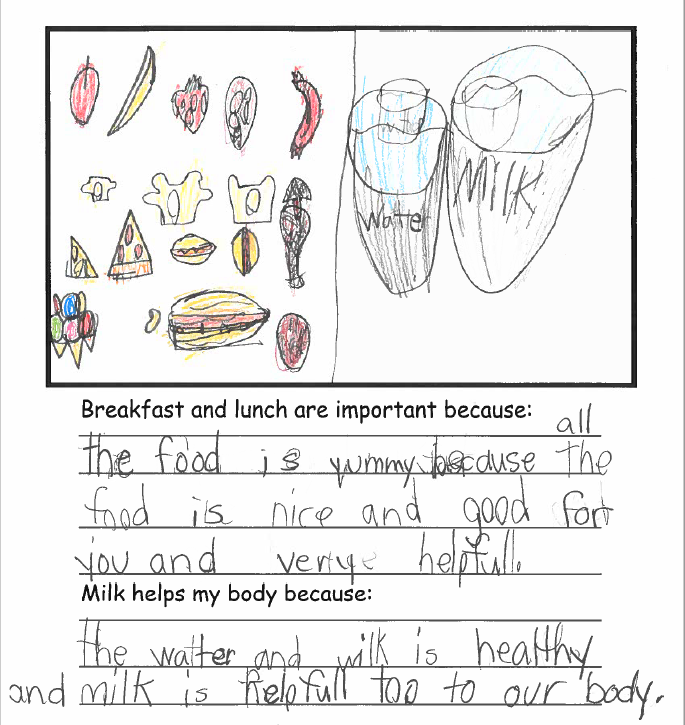 Water
Watter
MilK
Breakfast and lunch are important because:
all
the food is yummy because the
food is nice and good for
you and verye helpfull.
Milk helps my body because:
the watter and milk is healthy
and milk is helpfull too to our body.